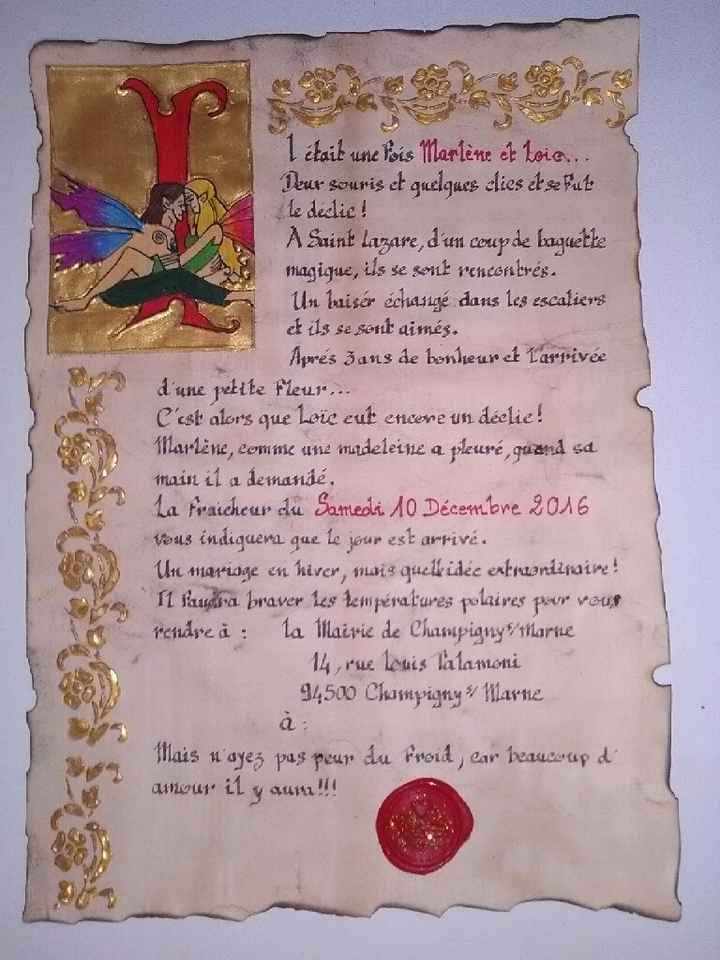 Il était une fois Marlène et Loïc...
Deux souris et quelques clics et se fut
le déclic !
A Saint Lazare, d'un coup de baguette
magique, ils se sont rencontrés.
Un baisér échangé dans les escaliers
et ils se sont aimés.
Aprés 3 ans de bonheur et l'arrivée
d'une petite fleur...
C'est alors que Loïc eut encore un déclic !
Marlène, comme une madeleine a pleuré, quand sa
main il a demandé.
La fraicheur du Samedi 10 Décembre 2016
vous indiquera que le jour est arrivé.
Un mariage en hiver, mais quelle idée extraordinaire !
Il faudra braver les températures polaires pour vous
rendre à : La Mairie de Champigny s/Marne
14, rue Louis Talamoni
94500 Champigny s/ Marne
à :
Mais n'ayez pas peur du froid, car beaucoup d'
amour il y aura !!!